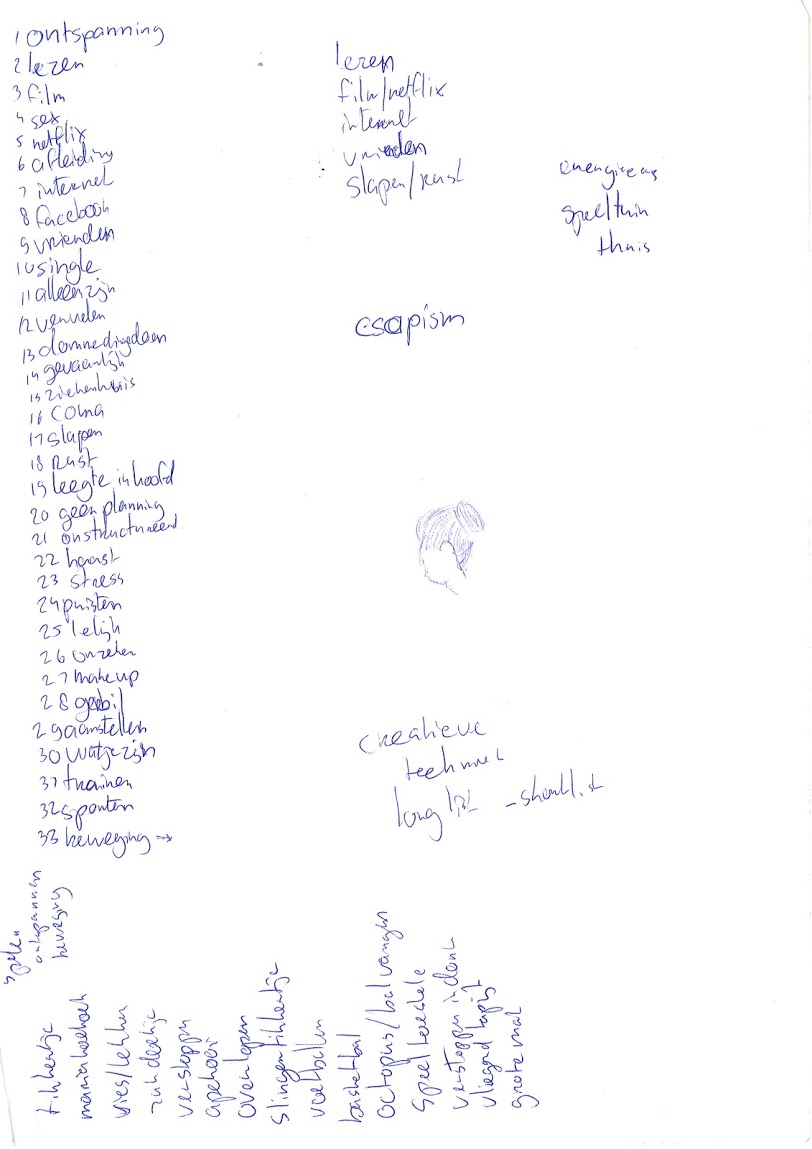 1 ontspanning
2 lezen
3 film
4 sex
5 netflix
6 afleiding
7 internet
8 facebook
9 vrienden
10 single
11 alleen zijn
12 vervelen
13 domme dingen doen
14 gevaarlijk
15 ziekenhuis
16 coma
17 slapen
18 rust
19 leegte in hoofd
20 geen planning
21 onstructureerd
22 haast
23 stress
24 puisten
25 lelijk
26 onzeker
27 makeup
28 gerbil
29 aanstellen
30 watje zijn
31 trainen
32 sporten
33 beweging →
lezen
film/netflix
internet
vrienden
slapen/rust
speeltuin
thuis
esapism
creatieve
techniek
longlist - shortlist
spelen
ontspannen
beweging
tikkertje
annemariakoekoek
vies/lekker
verstoppen
apekooi
overlopen
slingertikkertje
voetballen
basketbal
octopus/bal vangen
speelkwartier
verstoppen in donker
vliegend tapijt
grote mat